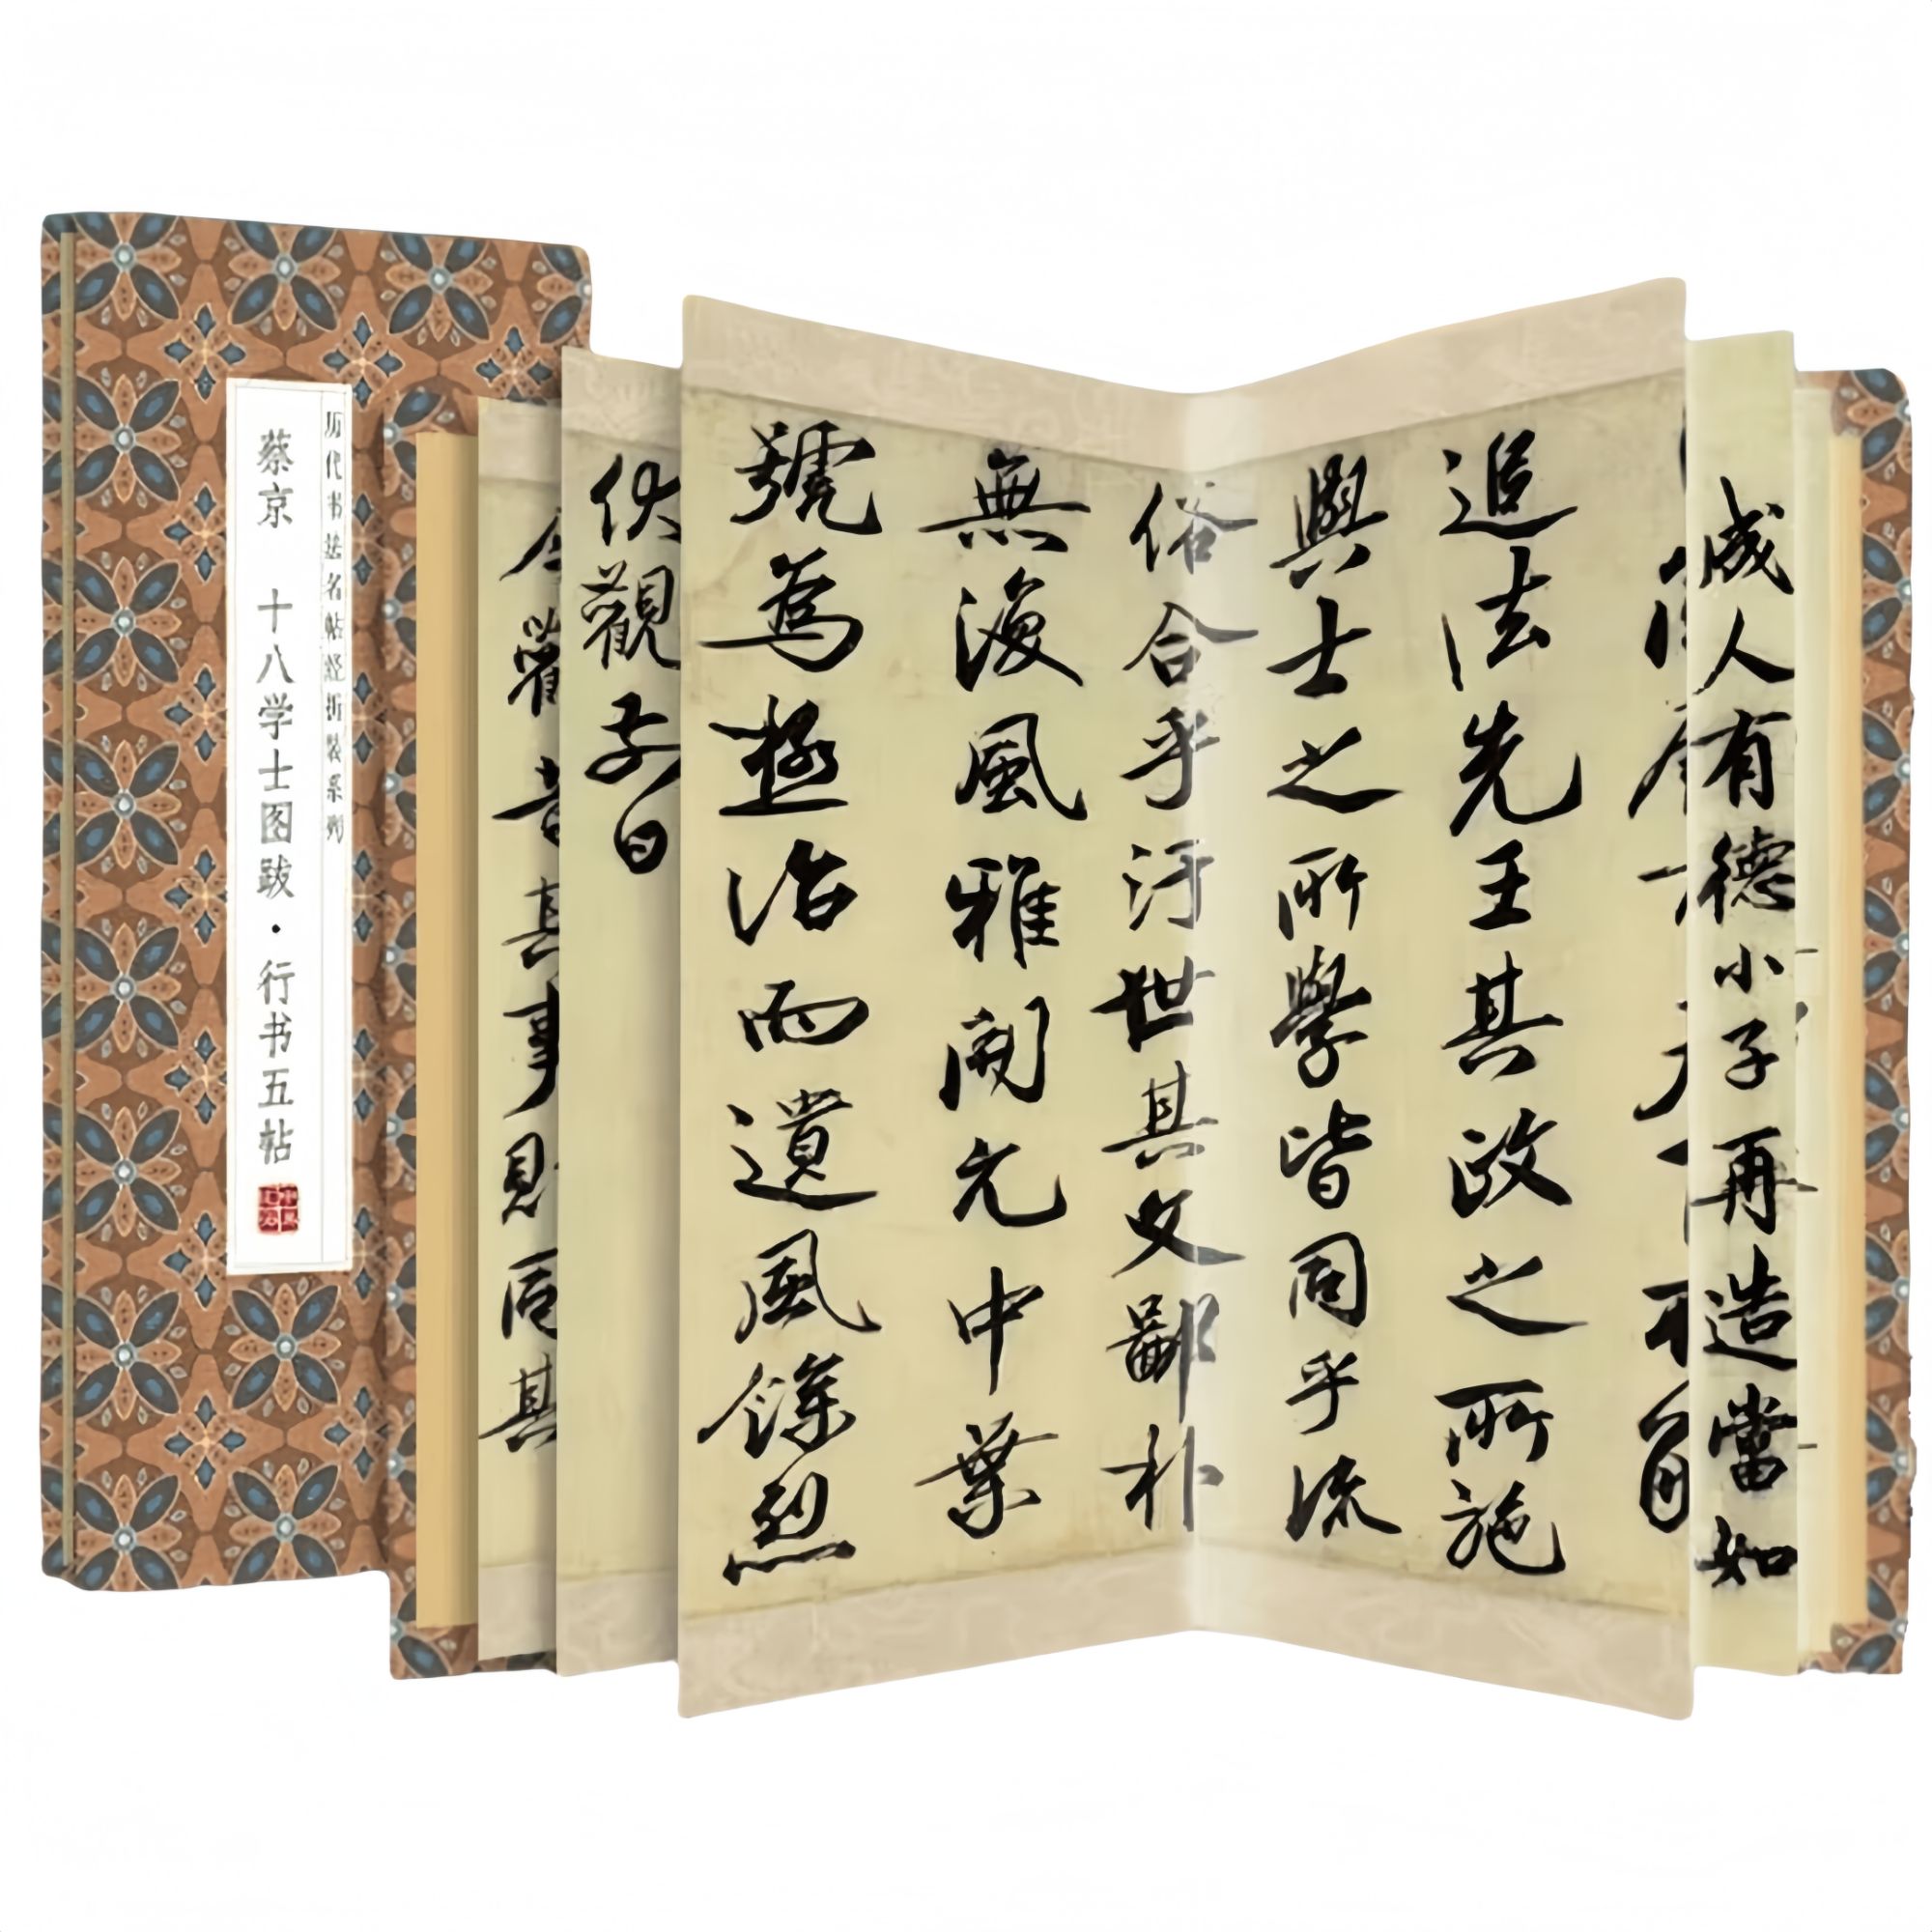 历代书法名帖经折装系列
蔡京 十八学士图跋·行书五帖
成人有德小子再造當如
追法先王其政之所施
與士之所學皆同乎流
俗合乎汙世其文鄙朴
無復風雅開元中葉
號為極治而遺風餘烈
伏觀
其事則同其